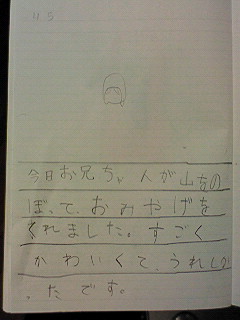 今日お兄ちゃんが山をの
ぼって、おみやげを
くれました。すごく
かわいくて、うれしか
ったです。